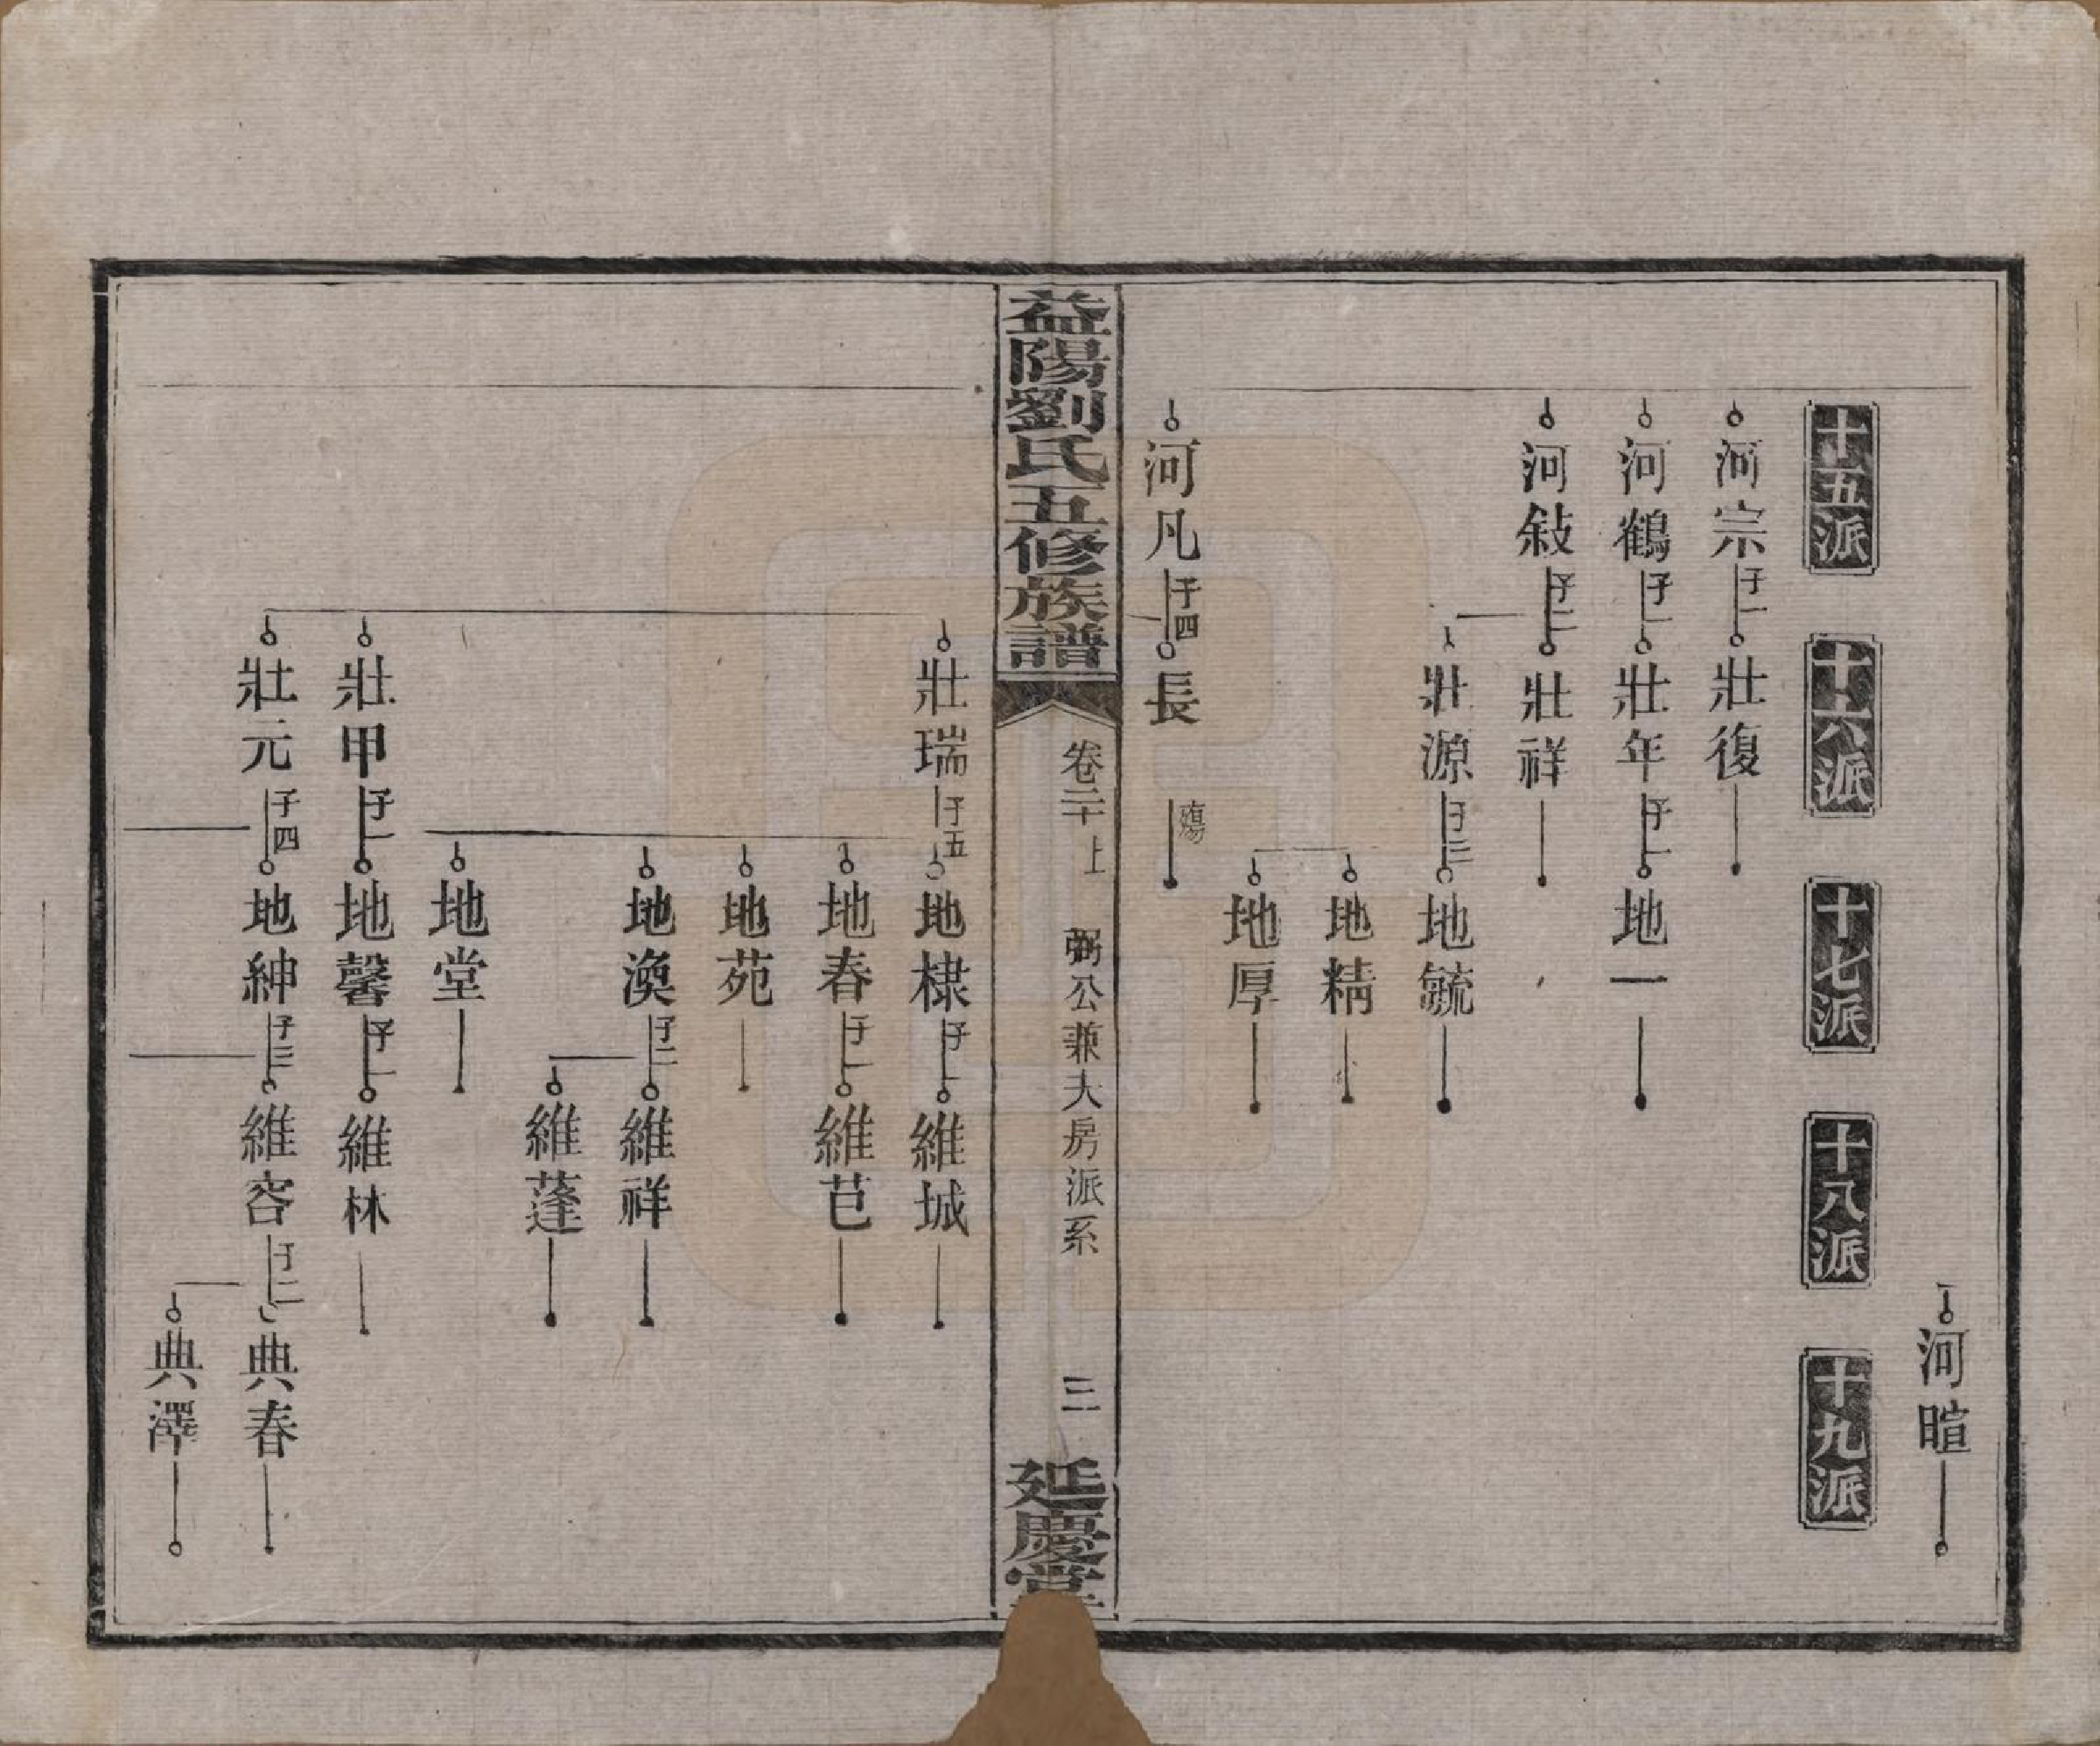 河暄
十五派
十六派
十七派
十八派
十九派
河宗 子一 壯復
河鶴 子一 壯年 子一 地一
河敍 子二 壯祥
壯源 子三 地毓
地精
地厚
河凡 子四 長 殤
益陽劉氏五修族譜
卷二十上 弼公兼大房派系 三
延慶堂
壯瑞 子五 地棣 子一 維城
地春 子一 維芑
地苑
地渙 子二 維祥
維蓬
地堂
壯甲 子一 地馨 子一 維林
壯元 子四 地紳 子三 維容 子二 典春
典澤